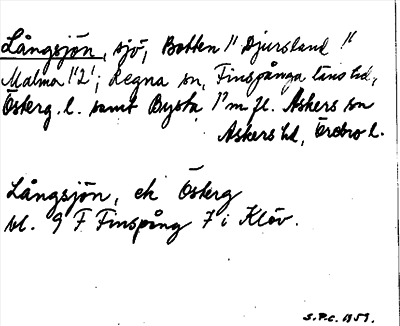 Långsjön, sjö, Botten 1" Djursland 1"
Malma 1'2'; Regna sn, Finspånga läns hd,
Österg. l. samt Bysta 1" m fl. Askers sn
Askers hd, Örebro l.
Långsjön, ek Österg
bl. 9 F Finspång 7 i Klöv.
S.P.C. 1959.